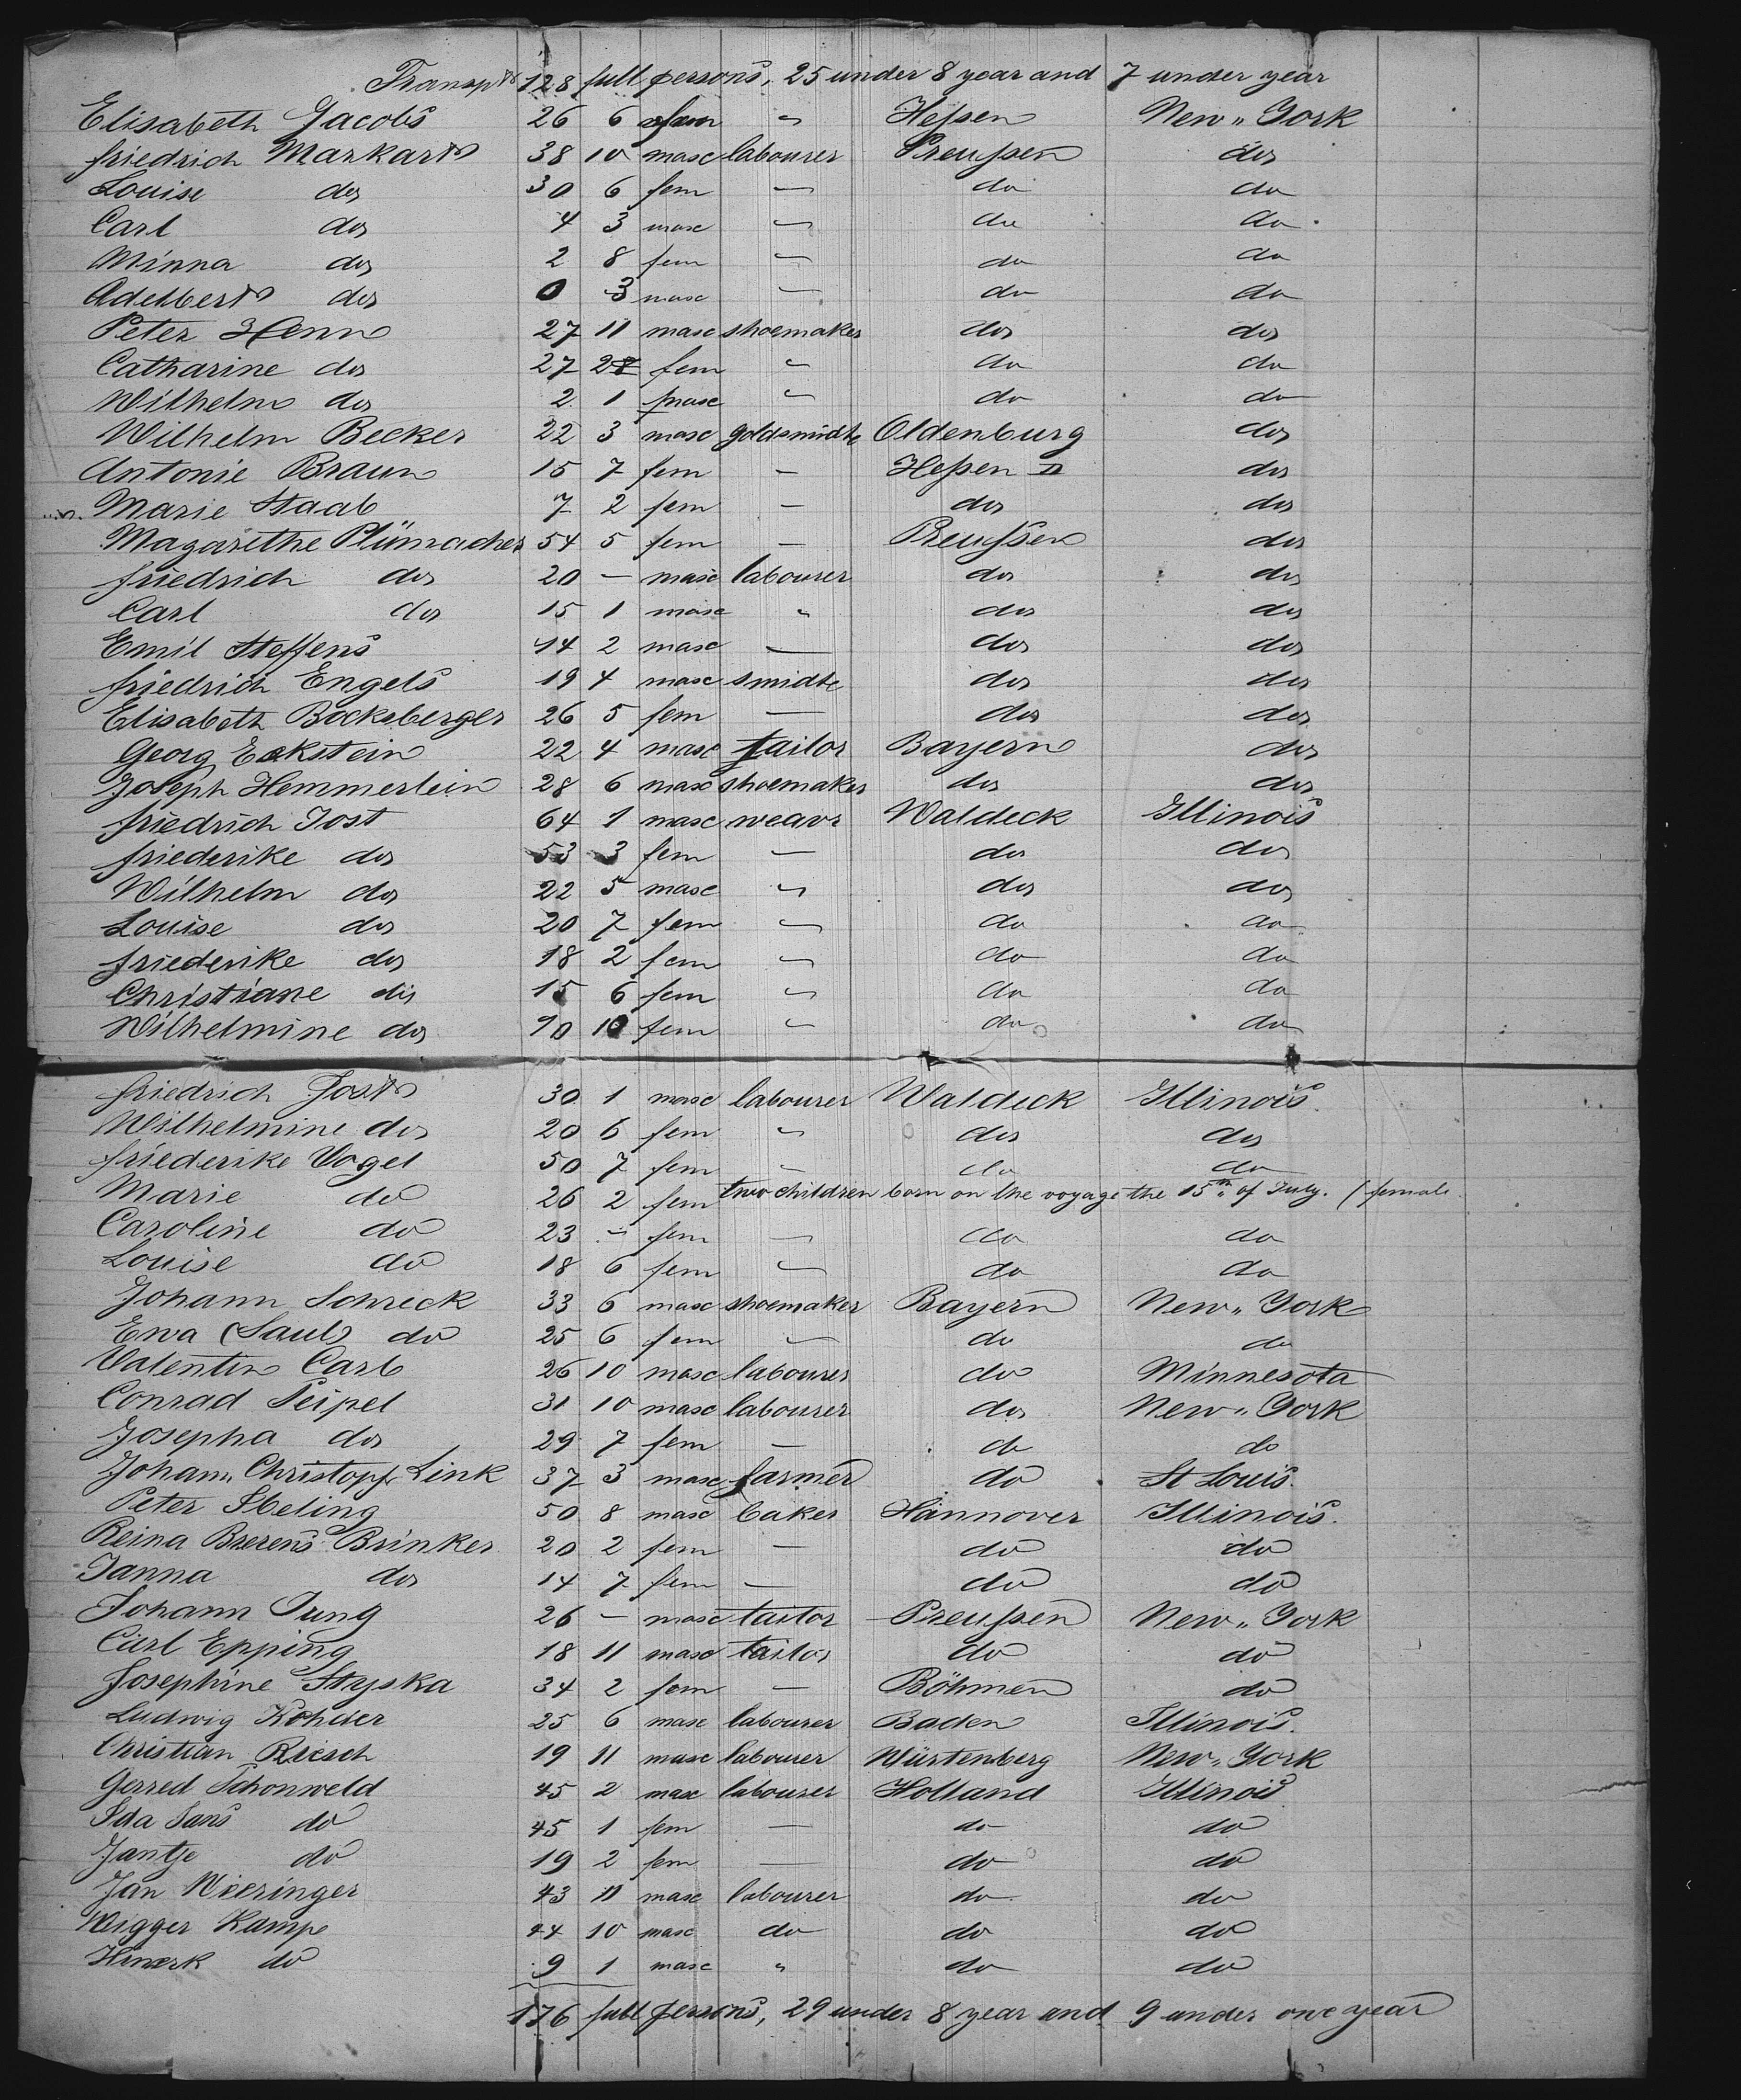 Transpt 128 full persons, 25 under 8 year and 7 under year
Elisabeth Jacobs 26 6 fem " Heßen New York
Friedrich Markart 38 10 masc labourer Preußen do
Louise do 30 6 fem — do do
Carl do 4 3 masc — do do
Minna do 2 8 fem — do do
Adelbert do 0 3 masc — do do
Peter Henn 27 11 masc shoemaker do do
Catharine do 27 2 fem " do do
Wilhelm do 2 1 masc " do do
Wilhelm Becker 22 3 masc goldsmidt Oldenburg do
Antonie Braun 15 7 fem — Heßen do
Marie Staab 7 2 fem — do do
Magarethe Plümacher 54 5 fem — Preußen do
Friedrich do 20 — masc labourer do do
Carl do 15 1 masc " do do
Emil Steffens 14 2 masc — do do
Friedrich Engels 19 4 masc smidt do do
Elisabeth Bocksberger 26 5 fem — do do
Georg Eckstein 22 4 masc tailor Bayern do
Joseph Hemmerlein 28 6 masc shoemaker do do
Friedrich Jost 64 1 masc weavr Waldeck Illinois
Friederike do 53 3 fem — do do
Wilhelm do 22 5 masc " do do
Louise do 20 7 fem " do do
Friederike do 18 2 fem " do do
Christiane do 15 6 fem " do do
Wilhelmine do 10 10 fem " do do
Friedrich Jost 30 1 masc labourer Waldeck Illinois.
Wilhelmine do 20 6 fem " do do
Friederike Vogel 50 7 fem " do do
Marie do 26 2 fem two children born on the voyage the 15th of July. (female
Caroline do 23 — fem — do do
Louise do 18 6 fem — do do
Johann Schreck 33 6 masc shoemaker Bayern New York
Ewa (Saul) do 25 6 fem — do do
Valentin Carl 26 10 masc labourer do Minnesota
Conrad Seipel 31 10 masc labourer do New York
Josepha do 29 7 fem — do do
Johann Christoph Link 37 3 masc farmer do St Louis.
Peter Sbeling 50 8 masc baker Hannover Illinois.
Reina Berens Brinker 20 2 fem — do do
Janna do 14 7 fem — do do
Johann Jung 26 — masc tailor Preußen New York
Carl Epping 18 11 masc tailor do do
Josephine Stryska 34 2 fem — Böhmen do
Ludwig Kohder 25 6 masc labourer Baden Illinois.
Christian Riesch 19 11 masc labourer Würtenberg New York
Gerred Schonweld 45 2 masc labourer Holland Illinois
Ida Jans do 45 1 fem — do do
Jantje do 19 2 fem — do do
Jan Wieringer 43 11 masc labourer do do
Wigger Kampe 44 10 masc do do do
Hinerk do 9 1 masc " do do
176 full persons, 29 under 8 year and 9 under one year